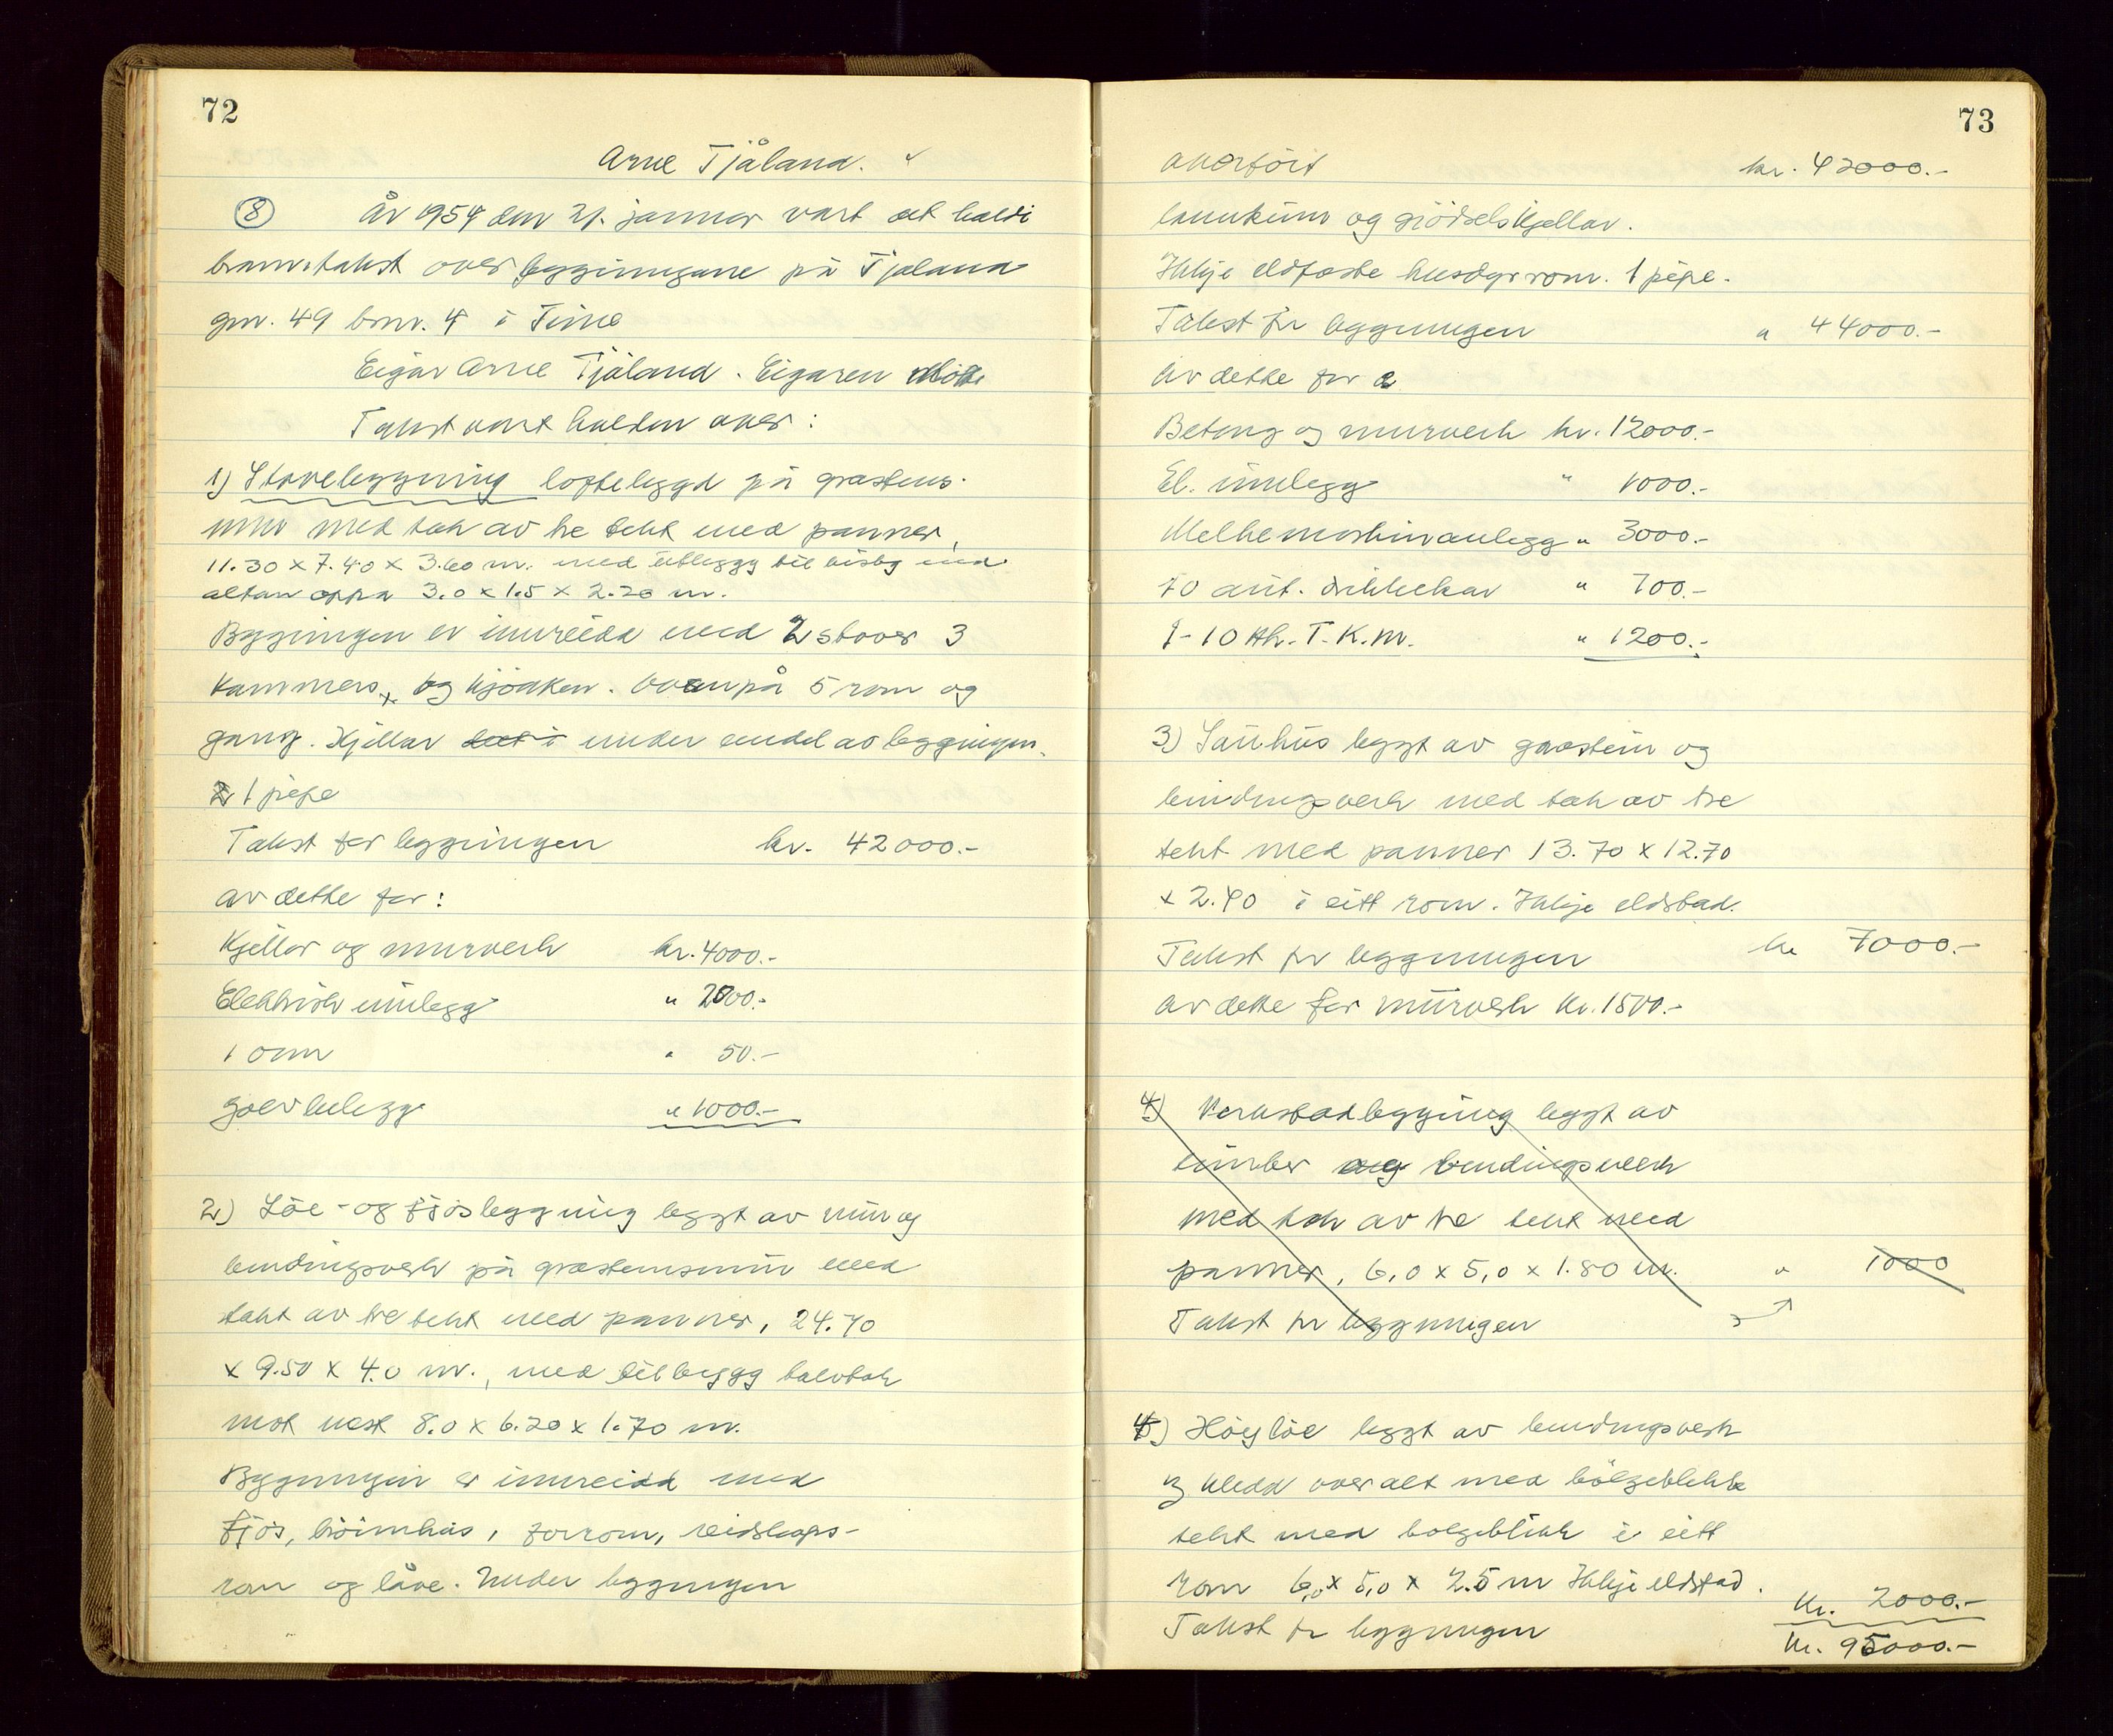 72
Arne Tjåland.
(8) År 1954 den 21. januar vart det haldi
branntakst over bygningane på Tjåland
gnr. 49 bnr. 4 i Time
Eigar Arne Tjåland. Eigaren møtte
Takst vart halden over:
1) Stovebygging loftebygd på gråsteins-
mur med tak av tre tekt med panner,
11.30 x 7.40 x 3.60 m. med utbygg til bislag med
altan oppå 3.0 x 1.5 x 2.20 m.
Bygningen er innreidd med 2 stover 3
kammers, og kjøkken. Ovenpå 5 rom og
gang. Kjellar under endel av bygningen.
1 pipe
Takst for bygningen kr. 42000.-
av dette for:
Kjellar og murverk kr. 4000.-
Elektrisk innlegg " 2000.-
1 omn " 50.-
Golvbelegg " 1000.-
2) Løe- og fjøsbygging bygt av mur og
bindingsverk på gråsteinsmur med
takt av tre tekt med panner, 24.70
x 9.50 x 4.0 m., med tilbygg halvtak
mot vest 8.0 x 6.20 x 1.70 m.
Bygningen er innreidd med
fjøs, grisehus, forrom, reidskaps-
rom og låve. Under bygningen
73
overført kr. 42000.-
landkum og gjødselskjellar.
Ikkje eldfaste husdyrrom. 1 pipe.
Takst for bygningen " 44000.-
Av dette for
Betong og murverk kr. 12000.-
El. innlegg " 1000.-
Melkemaskinanlegg " 3000.-
10 aut. drikkekar " 700.-
1-10 Hk. T.K.M. " 1200.-
3) Sauhus bygt av gråstein og
bindingsverk med tak av tre
tekt med panner 13.70 x 12.70
x 2.40 i eitt rom. Ikkje eldstad.
Takst for bygningen kr 7000.-
Av dette for murverk kr. 1500.-
4) Verkstadbygging bygt av
timber og bindingsverk
med tak av tre tekt med
panner, 6,0 x 5,0 x 1.80 m. " 1000
Takst for bygningen
4) Høyløe bygt av bindingsverk
og kledd over alt med bølgeblekk
tekt med bølgeblikk i eitt
rom 6,0 x 5,0 x 2.5 m Ikkje eldstad.
Takst for bygningen kr. 2000.-
kr. 95000.-